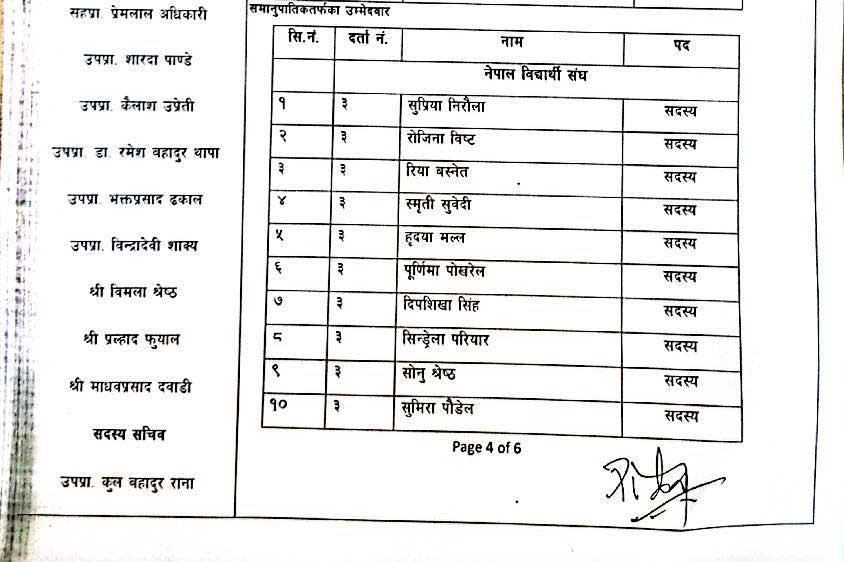 सहप्रा. प्रेमलाल अधिकारी
उपप्रा. शारदा पाण्डे
उपप्रा. कैलाश उप्रेती
उपप्रा. डा. रमेश वहादुर थापा
उपप्रा. भक्तप्रसाद ढकाल
उपप्रा. विन्द्रादेवी शाक्य
श्री विमला श्रेष्ठ
श्री प्रल्हाद फुयाल
श्री माधवप्रसाद दवाडी
सदस्य सचिव
उपप्रा. कुल वहादुर राना
समानुपातिकतर्फका उम्मेदवार
सि.नं. दर्ता नं. नाम पद
नेपाल विद्यार्थी संघ
१ ३ सुप्रिया निरौला सदस्य
२ ३ रोजिना विष्ट सदस्य
३ ३ रिया बस्नेत सदस्य
४ ३ स्मृती सुवेदी सदस्य
५ ३ हृदया मल्ल सदस्य
६ ३ पूर्णिमा पोखरेल सदस्य
७ ३ दिपशिखा सिंह सदस्य
८ ३ सिन्ड्रेला परियार सदस्य
९ ३ सोनु श्रेष्ठ सदस्य
१० ३ सुमिरा पौडेल सदस्य
Page 4 of 6